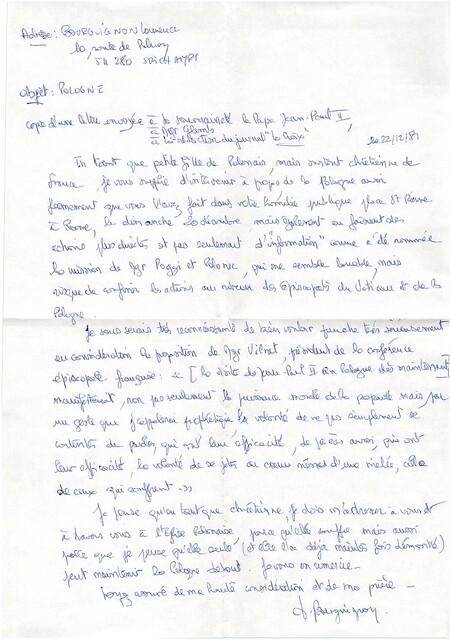 Adresse : BOURGUIGNON Laurence
route de
54 280 SEICHAMPS
Objet : POLOGNE
copie d'une lettre envoyée à sa souveraineté le Pape Jean-Paul II,
à Mgr Glemb
à la rédaction du journal "la Croix"
le 22/12/81
En tant que petite fille de Polonais, mais surtout chrétienne de
France, je vous supplie d'intervenir à propos de la Pologne aussi
fermement que vous l'avez fait dans votre homélie publique place St Pierre
à Rome, le dimanche 20 décembre, mais également en faisant des
actions plus directes et pas seulement d'"information" comme a été nommée
la mission de Mgr Poggi et, qui me semble louable, mais
risque de confiner les actions au niveau des Episcopats du Vatican et de la
Pologne.
Je vous serais très reconnaissante de bien vouloir prendre très sérieusement
en considération la proposition de Mgr Vilnet, président de la conférence
épiscopale française : « [la visite de Jean-Paul II en Pologne dès maintenant]
manifesterait, non pas seulement la puissance morale de la papauté mais, par
un geste que j'appellerai prophétique, la volonté de ne pas simplement se
contenter de paroles, qui ont leur efficacité, de prières aussi, qui ont
leur efficacité, la volonté de se jeter au coeur même d'une mêlée, celle
de ceux qui souffrent. »
Je pense qu'en tant que chrétienne, je dois m'adresser à vous et
à travers vous à l'Eglise Polonaise, parce qu'elle souffre mais aussi
parce que je pense qu'elle seule (et elle l'a déjà maintes fois démontré)
peut maintenir la Pologne debout. Je vous en remercie -
Soyez assuré de ma haute considération et de ma prière -
Bourguignon